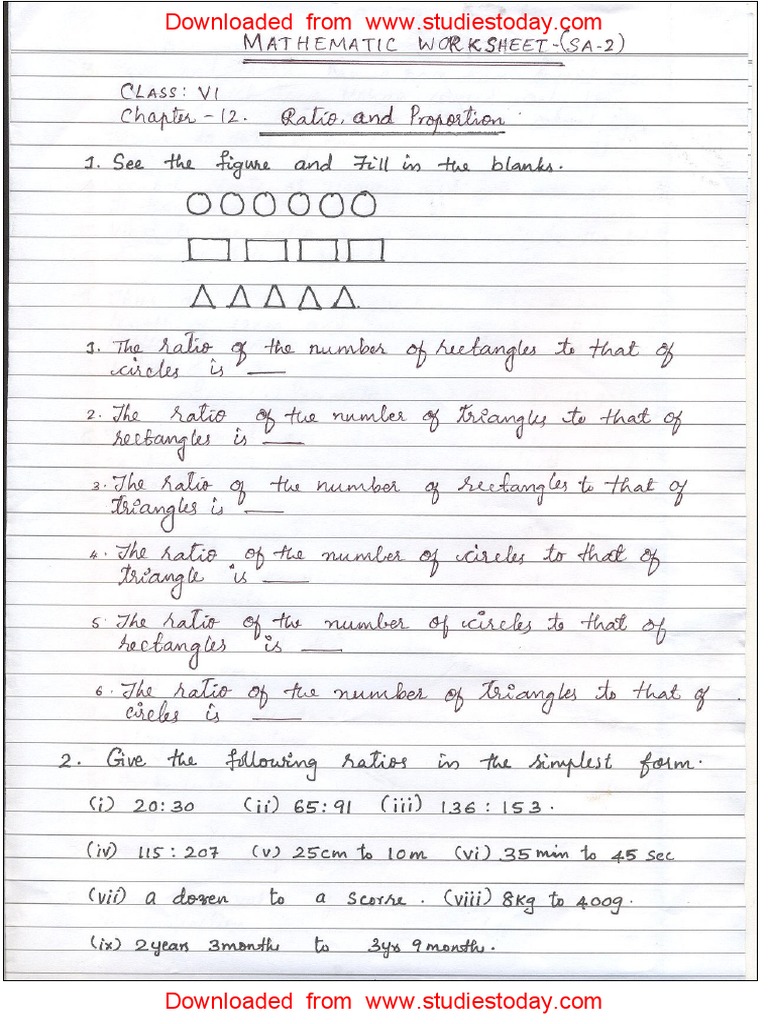 Downloaded from www.studiestoday.com
MATHEMATIC WORKSHEET-(SA-2)
CLASS: VI
Chapter - 12. Ratio, and Proportion
1. See the figure and Fill in the blanks.
1. The ratio of the number of rectangles to that of
circles is ___
2. The ratio of the number of triangles to that of
rectangles is ___
3. The ratio of the number of rectangles to that of
triangles is ___
4. The ratio of the number of circles to that of
triangle is ___
5. The ratio of the number of circles to that of
rectangles is ___
6. The ratio of the number of triangles to that of
circles is ___
2. Give the following ratios in the simplest form.
(i) 20:30 (ii) 65:91 (iii) 136 : 153.
(iv) 115 : 207 (v) 25cm to 10m (vi) 35min to 45 sec
(vii) a dozen to a scorre. (viii) 8Kg to 400g.
(ix) 2years 3months to 3yrs 9months.
Downloaded from www.studiestoday.com